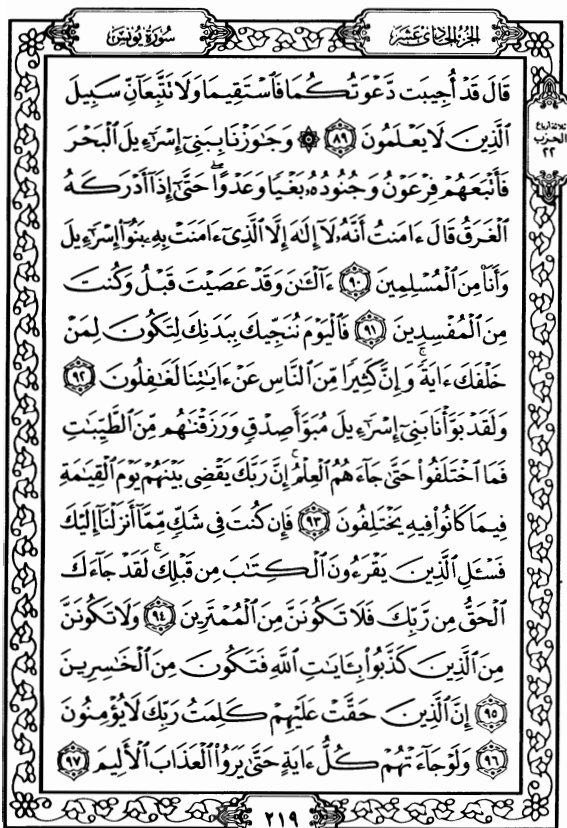 سُورَةُ يُونُسَ
الجُزْءُ الحَادِي عَشَرَ
قَالَ قَدْ أُجِيبَت دَّعْوَتُكُمَا فَٱسْتَقِيمَا وَلَا نَتَّبِعَآنِّ سَبِيلَ
ٱلَّذِينَ لَا يَعْلَمُونَ ٨٩ ۞ وَجَٰوَزْنَا بِبَنِىٓ إِسْرَٰٓءِيلَ ٱلْبَحْرَ
فَأَتْبَعَهُمْ فِرْعَوْنُ وَجُنُودُهُۥ بَغْيًا وَعَدْوًا ۖ حَتَّىٰٓ إِذَآ أَدْرَكَهُ
ٱلْغَرَقُ قَالَ ءَامَنتُ أَنَّهُۥ لَآ إِلَٰهَ إِلَّا ٱلَّذِىٓ ءَامَنَتْ بِهِۦ بَنُوٓا۟ إِسْرَٰٓءِيلَ
وَأَنَا۠ مِنَ ٱلْمُسْلِمِينَ ٩٠ ءَآلْـَٰٔنَ وَقَدْ عَصَيْتَ قَبْلُ وَكُنتَ
مِنَ ٱلْمُفْسِدِينَ ٩١ فَٱلْيَوْمَ نُنَجِّيكَ بِبَدَنِكَ لِتَكُونَ لِمَنْ
خَلْفَكَ ءَايَةً ۚ وَإِنَّ كَثِيرًا مِّنَ ٱلنَّاسِ عَنْ ءَايَٰتِنَا لَغَٰفِلُونَ ٩٢
وَلَقَدْ بَوَّأْنَا بَنِىٓ إِسْرَٰٓءِيلَ مُبَوَّأَ صِدْقٍ وَرَزَقْنَٰهُم مِّنَ ٱلطَّيِّبَٰتِ
فَمَا ٱخْتَلَفُوا۟ حَتَّىٰ جَآءَهُمُ ٱلْعِلْمُ ۚ إِنَّ رَبَّكَ يَقْضِى بَيْنَهُمْ يَوْمَ ٱلْقِيَٰمَةِ
فِيمَا كَانُوا۟ فِيهِ يَخْتَلِفُونَ ٩٣ فَإِن كُنتَ فِى شَكٍّ مِّمَّآ أَنزَلْنَآ إِلَيْكَ
فَسْـَٔلِ ٱلَّذِينَ يَقْرَءُونَ ٱلْكِتَٰبَ مِن قَبْلِكَ ۚ لَقَدْ جَآءَكَ
ٱلْحَقُّ مِن رَّبِّكَ فَلَا تَكُونَنَّ مِنَ ٱلْمُمْتَرِينَ ٩٤ وَلَا تَكُونَنَّ
مِنَ ٱلَّذِينَ كَذَّبُوا۟ بِـَٔايَٰتِ ٱللَّهِ فَتَكُونَ مِنَ ٱلْخَٰسِرِينَ
٩٥ إِنَّ ٱلَّذِينَ حَقَّتْ عَلَيْهِمْ كَلِمَتُ رَبِّكَ لَا يُؤْمِنُونَ
٩٦ وَلَوْ جَآءَتْهُمْ كُلُّ ءَايَةٍ حَتَّىٰ يَرَوُا۟ ٱلْعَذَابَ ٱلْأَلِيمَ ٩٧
ثلاثة أرباع
الحزب
٢٢
٢١٩